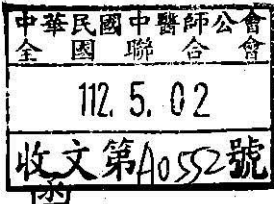 中華民國中醫師公會
全國聯合會
112. 5. 02
收文第A0552號
函